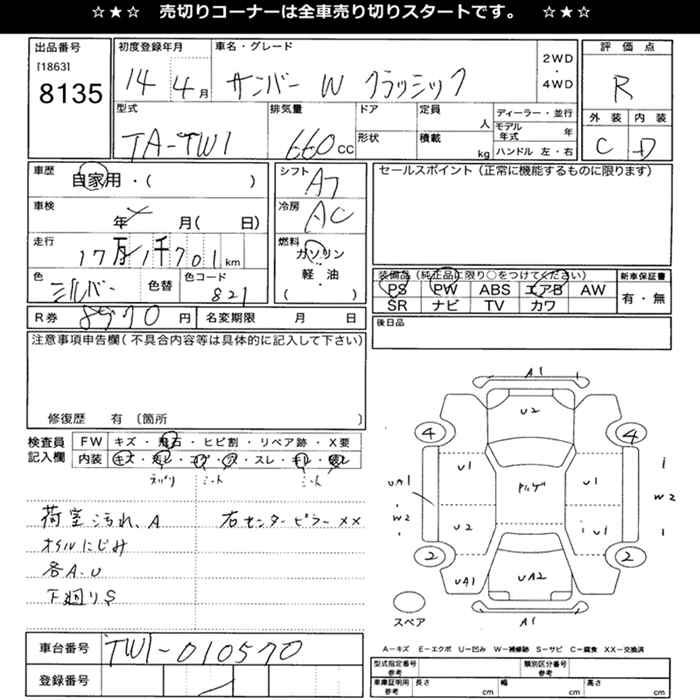 ☆★☆ 売切りコーナーは全車売り切りスタートです。 ☆★☆
出品番号
[1863]
8135
初度登録年月
14 4月
車名・グレード
サンバー W クラシック
2WD
・
4WD
評価点
R
外装 内装
C D
型式
TA-TW1
排気量
660cc
ドア
形状
定員
人
積載
kg
ディーラー・並行
モデル年式 年
ハンドル 左・右
車歴
自家用・( )
車検
年 月( 日)
走行
17万1千701km
色
シルバー
色替
色コード
821
シフト
A7
冷房
AC
燃料
ガソリン
軽・油
( )
セールスポイント(正常に機能するものに限ります)
装備品(純正品に限り○をつけてください)
PS PW ABS エアB AW
SR ナビ TV カワ
新車保証書
有・無
R券 8970円
名変期限 月 日
後日品
注意事項申告欄(不具合内容等は具体的に記入して下さい)
修復歴 有 〔箇所 〕
検査員記入欄
FW キズ・飛石・ヒビ割・リペア跡・X要
内装 キズ・汚レ・コゲ・穴・スレ・キレ・破レ
シート シート
荷室汚れ、A
オイルにじみ
各A.U
下廻りS
右センターピラーXX
A1
U2
4 4
U1 U1
UA1
W2
U2
W2
2 2
UA1
UA2
A1
スペア
A…キズ E…エクボ U…凹み W…補修跡 S…サビ C…腐食 XX…交換済
車台番号
TW1-010570
登録番号
型式指定番号 参考
類別区分番号 参考
車庫証明用 参考
長さ cm
幅 cm
高さ cm